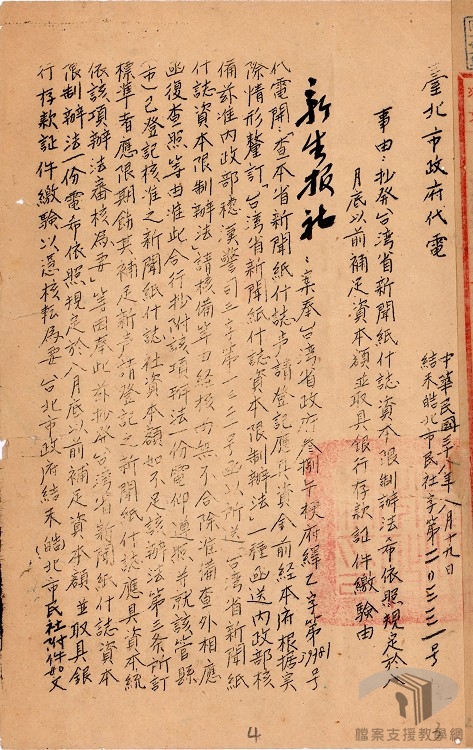 臺北市政府代電
中華民國三十八年八月十九日
結未皓北市民社字第二〇三三一號
事由：抄發台湾省新聞紙什誌資本限制辦法希依照規定於八
月底以前補足資本額並取具銀行存款証件繳驗由
新生报社：案奉台湾省政府叁捌午梗府繹乙字第39981号
代電開：「查本省新聞紙什誌声請登記應具資金前經本府根据实
際情形釐訂「台湾省新聞紙什誌資本限制辦法」一種函送內政部核
備茲准內政部穗漢警司三字第一三三一号函以所送台湾省新聞紙
什誌資本限制辦法」請核備等由經核尚無不合除准備查外相應
函復查照等由准此合行抄附該項辦法一份電仰遵照并就該管縣
市」已登記核准之新聞紙什誌社資本額如不足該辦法第三条所訂
標準者應限期飭其補足新声請登記之新聞紙什誌應具資本統
依該項辦法審核為要」等因奉此茲抄發台湾省新聞紙什誌資本
限制辦法一份電希依照規定於八月底以前補足資本額並取具銀
行存款証件繳驗以憑核轉為要台北市政府結未皓北市民社附件如文
4
檔案支援教學網